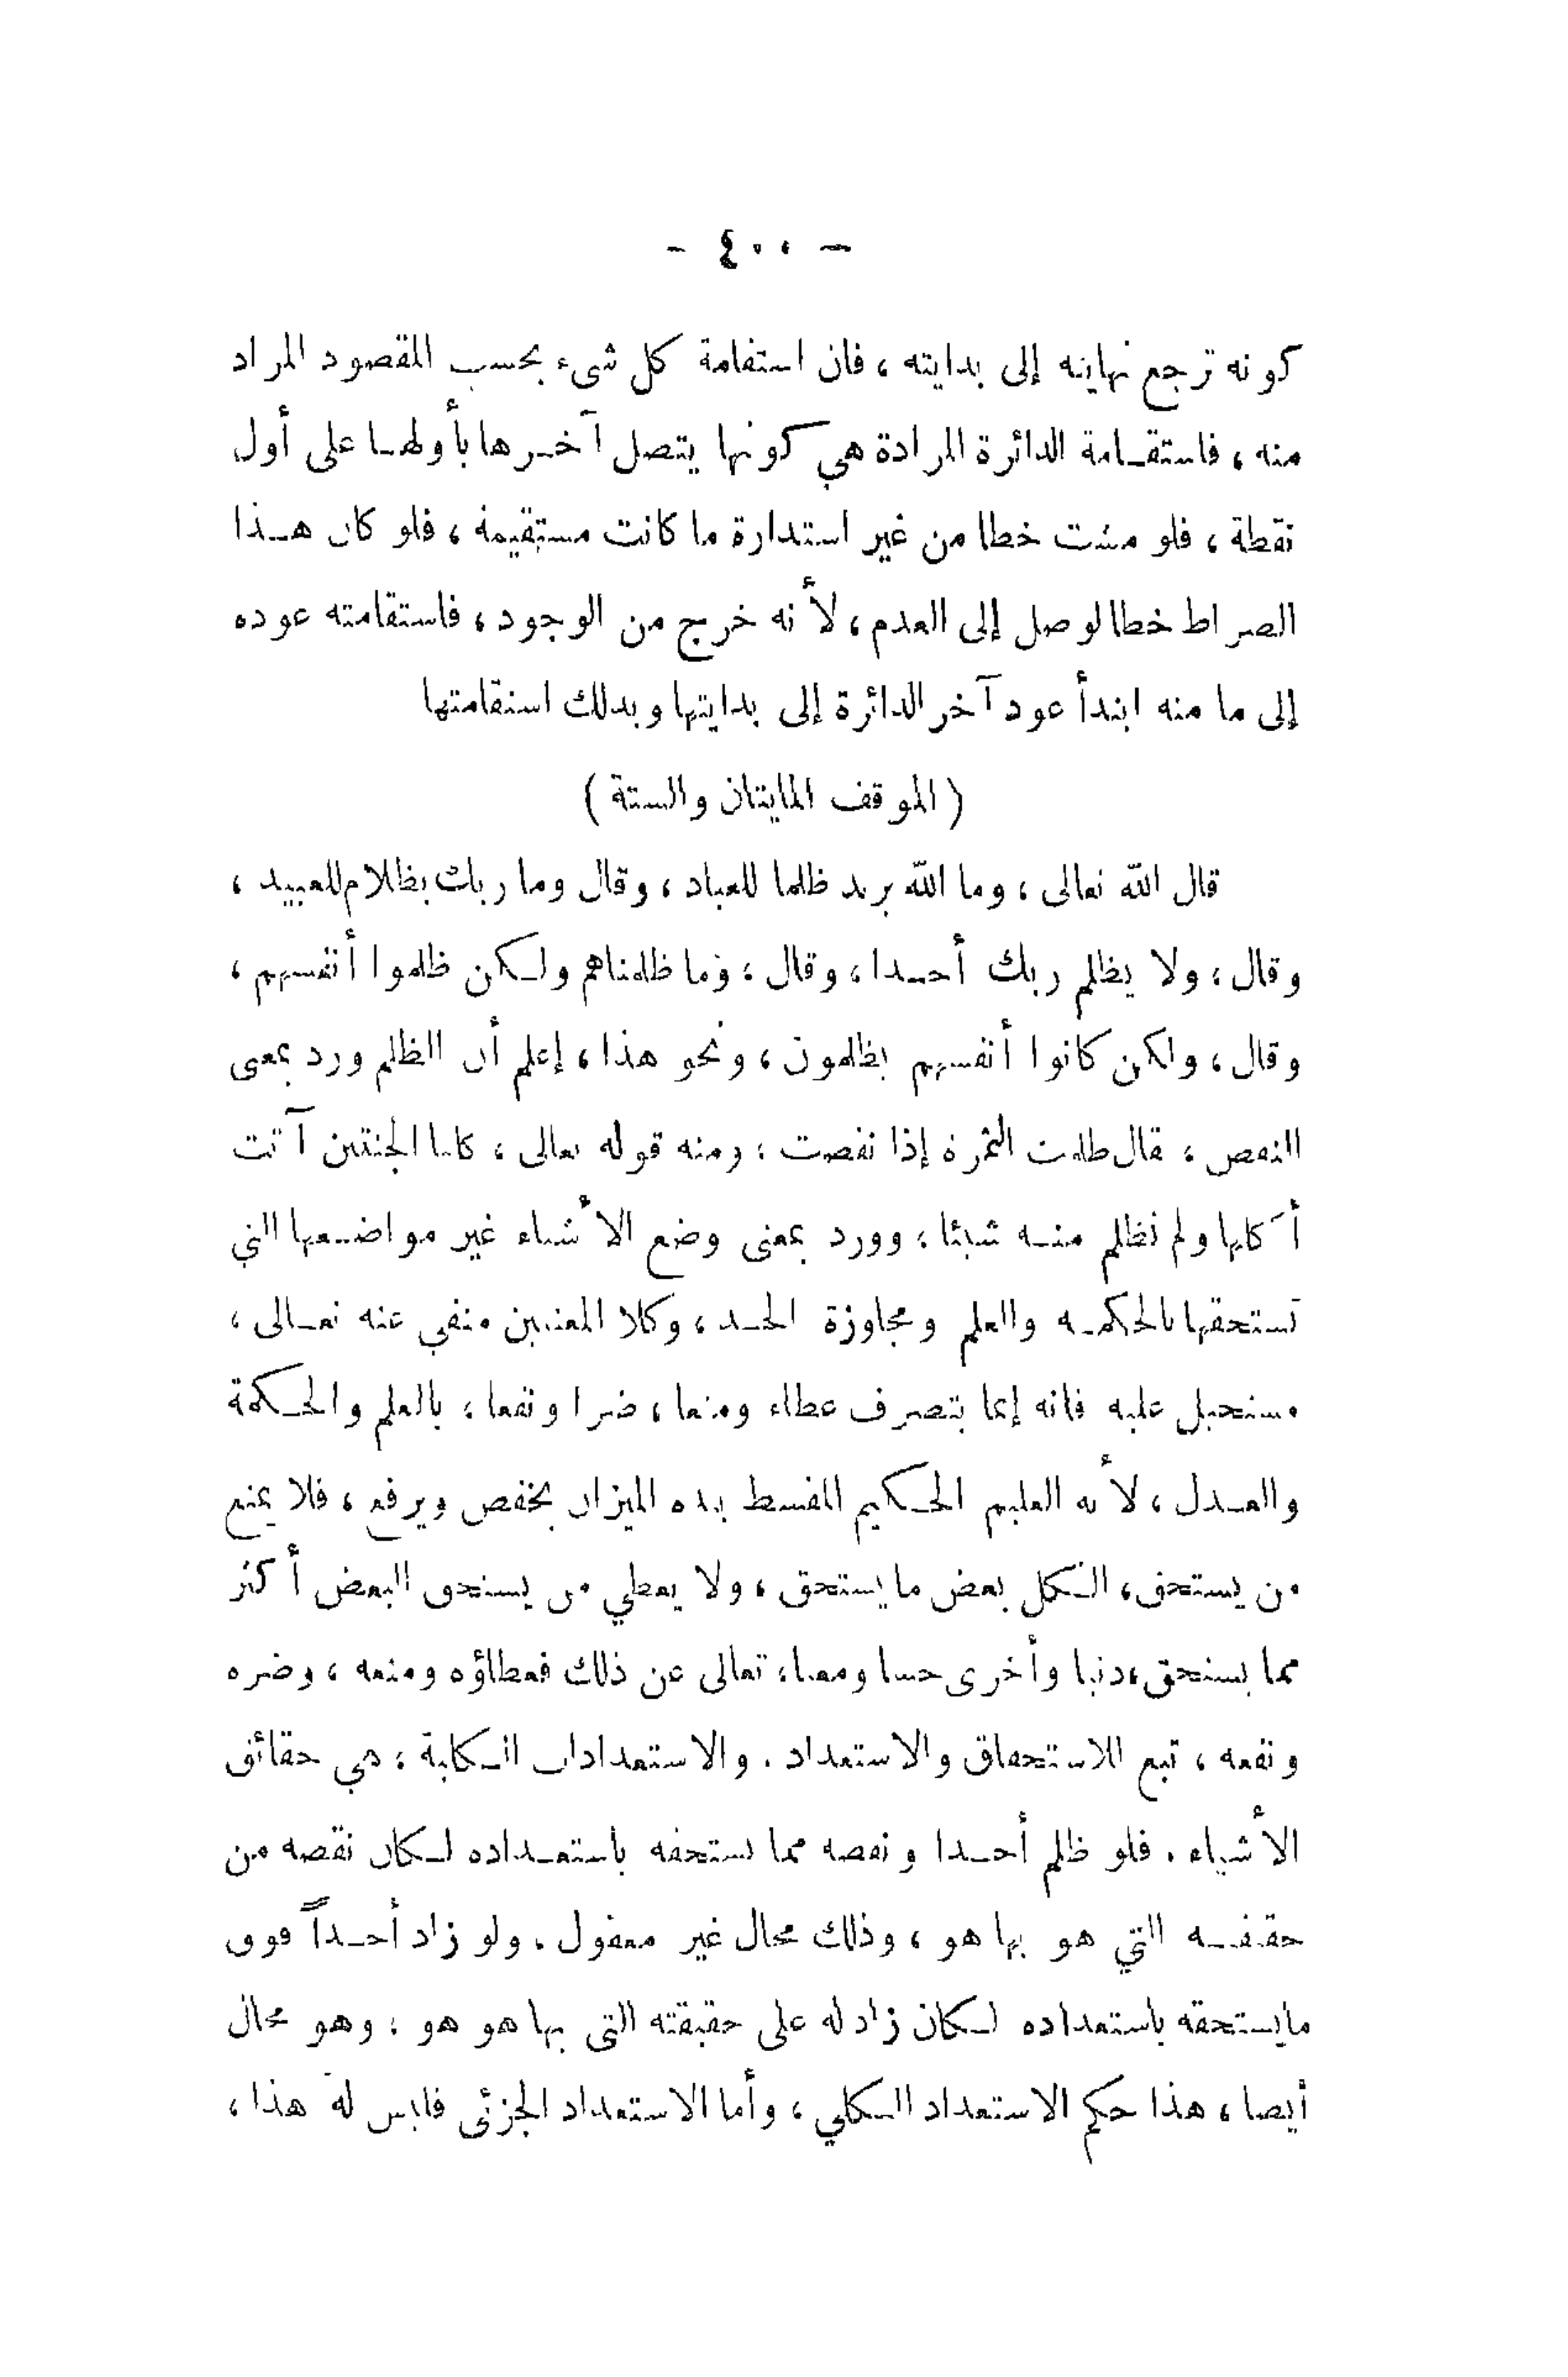 - ٤٠٠ -
كونه ترجع نهايته إلى بدايته ، فان استقامة كل شىء بحسب المقصود المراد
منه ، فاستقامة الدائرة المرادة هي كونها يتصل آخرها بأولها على أول
نقطة ، فلو مشت خطا من غير استدارة ما كانت مستقيمة ، فلو كان هذا
الصراط خطا لوصل إلى العدم ، لأنه خرج من الوجود ، فاستقامته عوده
إلى ما منه ابتدأ عود آخر الدائرة إلى بدايتها وبذلك استقامتها
( الموقف المايتان والستة )
قال الله تعالى ، وما الله يريد ظلما للعباد ، وقال وما ربك بظلام للعبيد ،
وقال ، ولا يظلم ربك أحدا ، وقال ، وما ظلمناهم ولكن ظلموا أنفسهم ،
وقال ، ولكن كانوا أنفسهم يظلمون ، ونحو هذا ، إعلم أن الظلم ورد بمعنى
النقص ، قال ظلمت الثمرة إذا نقصت ؛ ومنه قوله تعالى ، كلتا الجنتين آتت
أكلها ولم تظلم منه شيئا ؛ وورد بمعنى وضع الأشياء غير مواضعها التي
تستحقها بالحكمة والعلم ومجاوزة الحد ، وكلا المعنيين منفي عنه تعالى ،
مستحيل عليه فانه إنما يتصرف عطاء ومنعا ، ضرا ونفعا ؛ بالعلم والحكمة
والعدل ، لأنه العليم الحكيم المقسط بيده الميزان يخفض ويرفع ، فلا يمنع
من يستحق ، الكل بعض ما يستحق ، ولا يعطي من يستحق البعض أكثر
مما يستحق ، دنيا وأخرى حسا ومعنا ، تعالى عن ذلك فعطاؤه ومنعه ، وضره
ونفعه ، تبع للاستحقاق والاستعداد . والاستعدادات الكلية ؛ هي حقائق
الأشياء . فلو ظلم أحدا ونقصه مما يستحقه باستعداده لكان نقصه من
حقيقته التي هو بها هو ، وذلك محال غير معقول . ولو زاد أحداً فوق
مايستحقه باستعداده لكان زاد له على حقيقته التى بها هو هو ؛ وهو محال
أيضا ، هذا حكم الاستعداد الكلي ، وأما الاستعداد الجزئى فليس له هذا ،